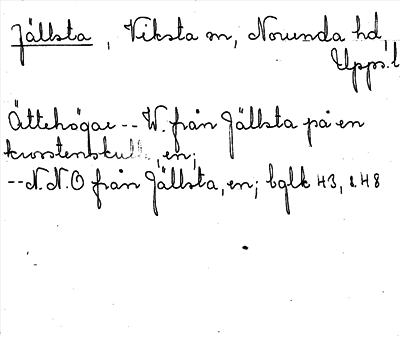 Jällsta, Viksta sn, Norunda hd,
Upps. l
Ättehögar -- W. från Jällsta på en
krosstenskulle, en;
-- N.N.O från Jällsta, en; bglk 43, s. 48